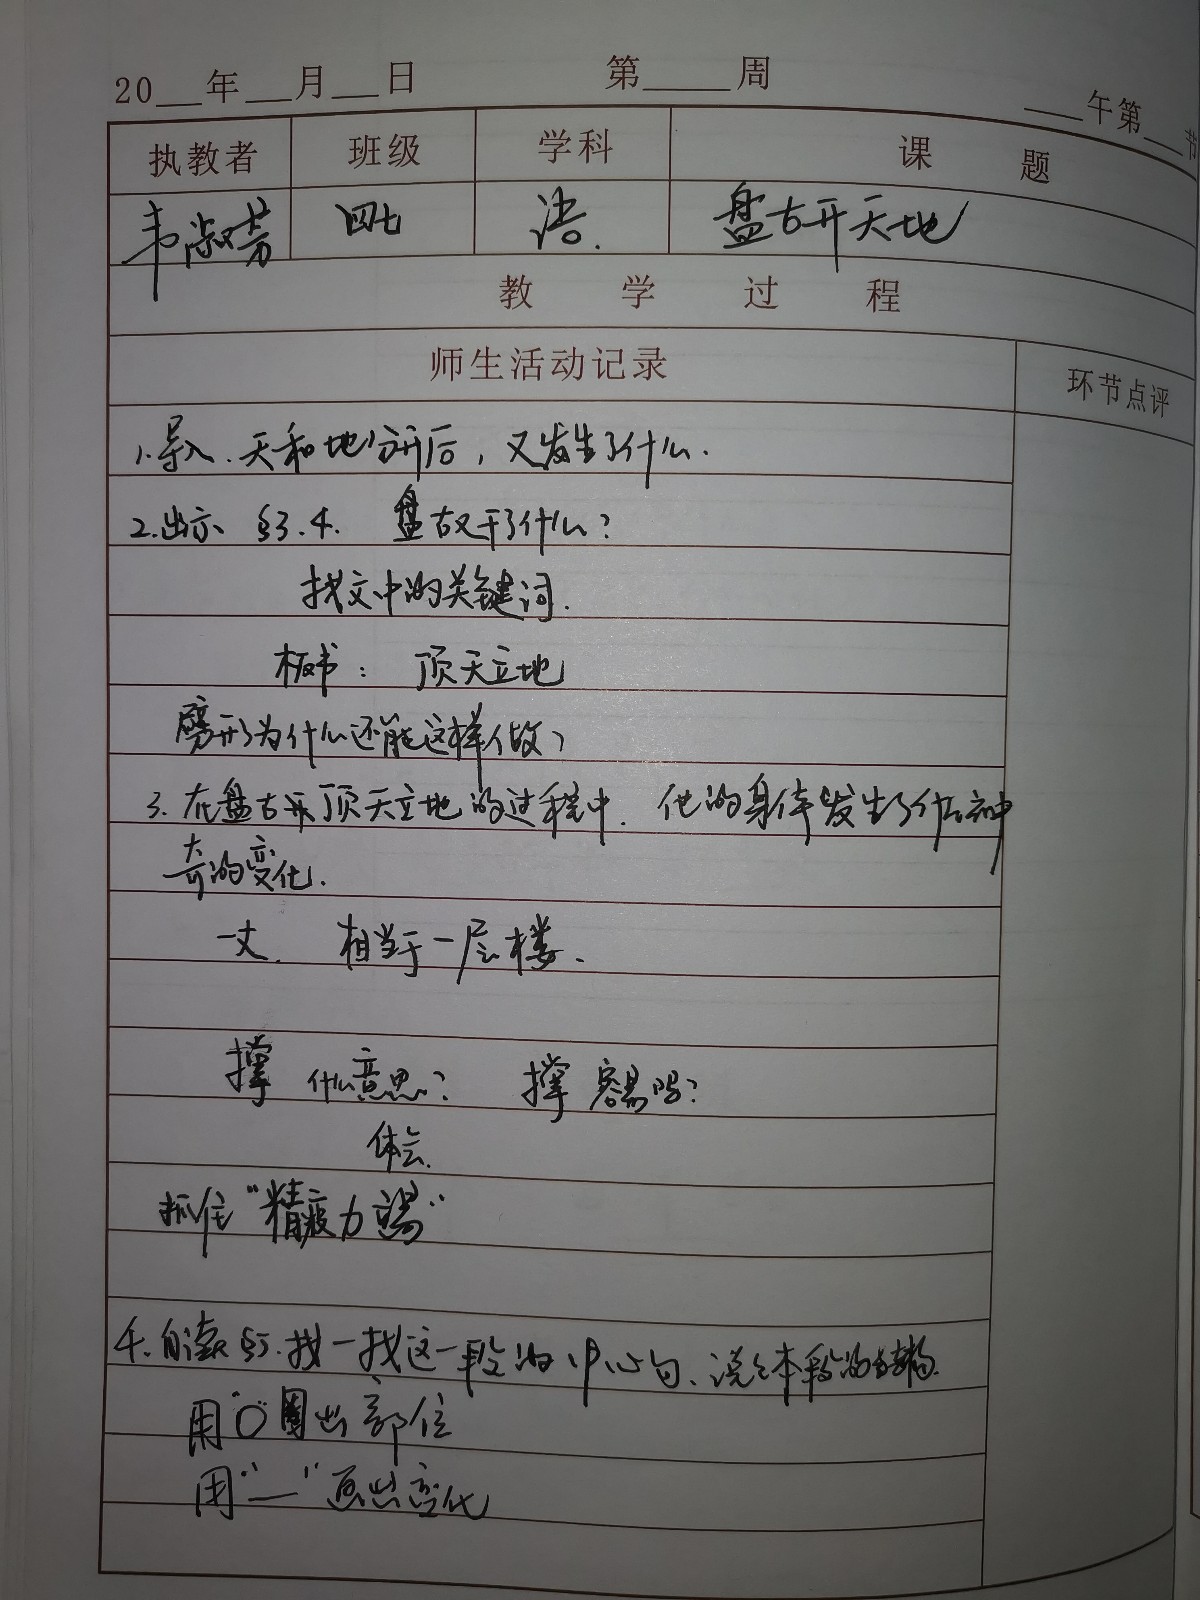 20___年___月___日 第_____周
___午第___节
执教者 班级 学科 课题
韦淑芳 四七 语. 盘古开天地
教学过程
师生活动记录 环节点评
1.导入.天和地分开后,又发生了什么.
2.出示 §3.4. 盘古又干了什么?
找文中的关键词.
板书: 顶天立地
劈开了为什么还能这样做?
3.在盘古开顶天立地的过程中.他的身体发生了什么神
奇的变化.
一丈. 相当于一层楼.
撑 什么意思? 撑容易吗?
体会.
抓住“精疲力竭”
4.自读§5.找一找这一段的中心句、说说本段的结构.
用“○”圈出部位
用“—”画出变化